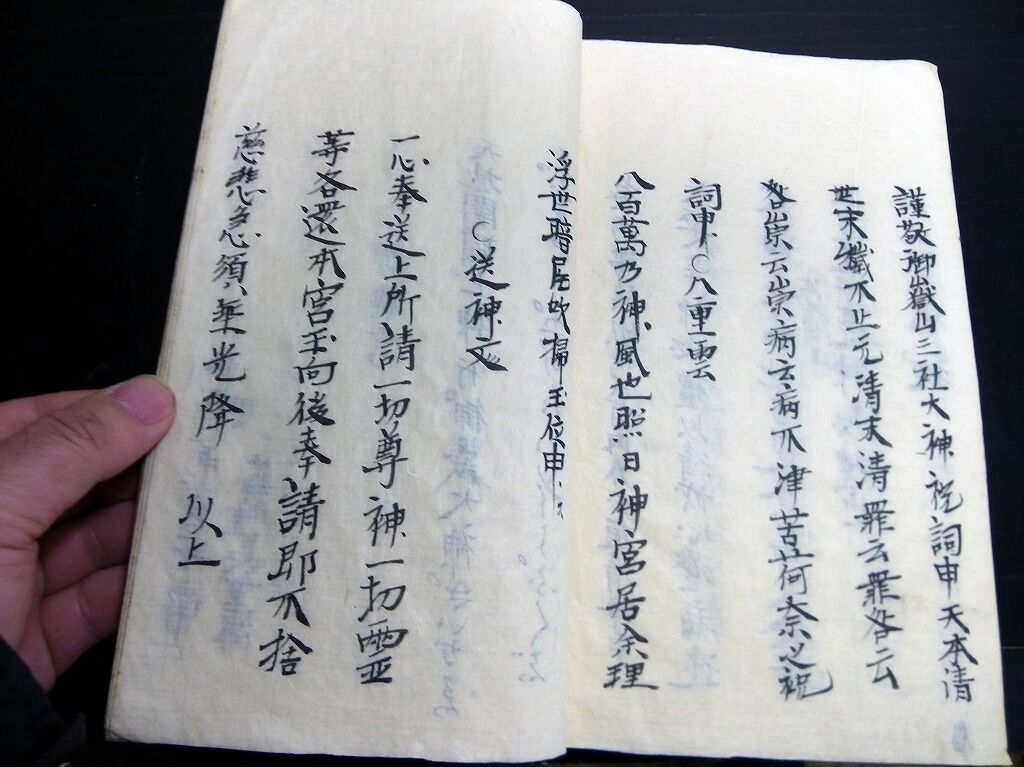 謹敬御嶽山三社大神祝詞申天本清
世末濊不止元清末清罪云罪咎云
咎祟云祟病云病不津苦荷奈之祝
詞申〇八重雲
八百萬乃神風也照日神宮居余理
浮世暗居吹掃玉位申
〇送神文
一心奉送上所請一切尊神一切
等各還本宮玉向後奉請即不捨
慈悲急須光降 以上